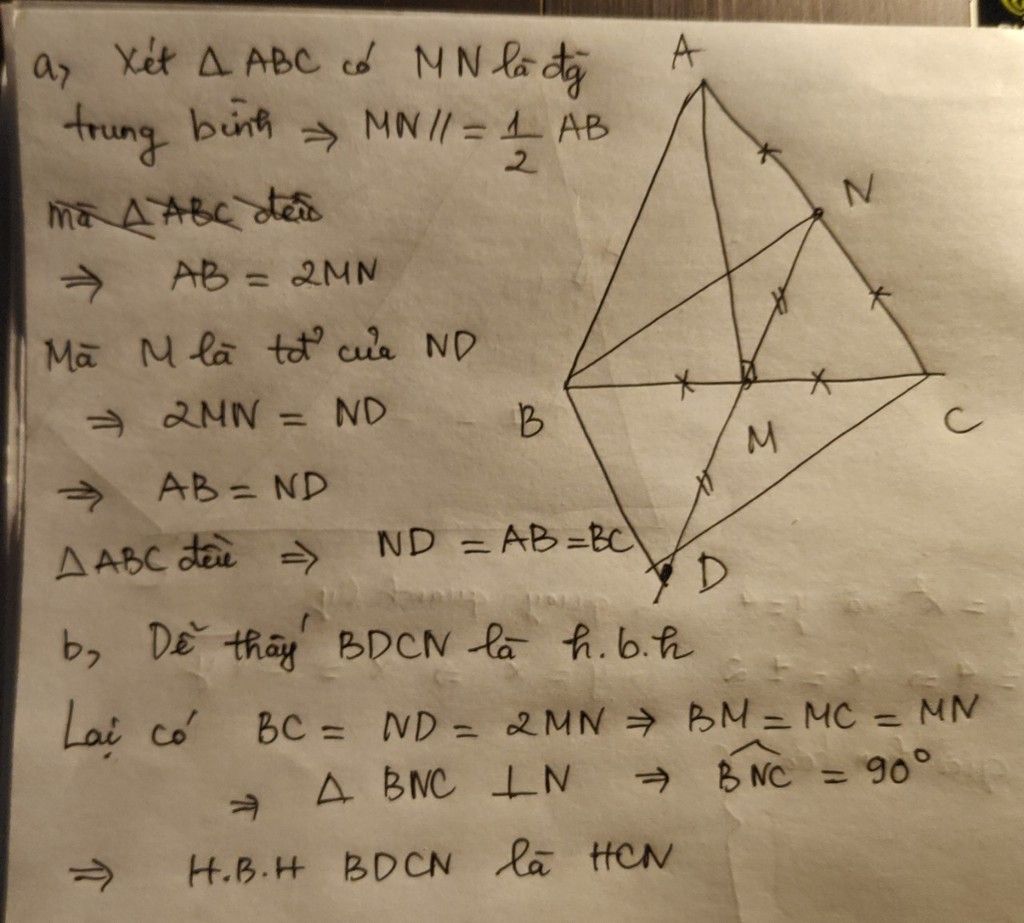 a, Xét Δ ABC có MN là đg
trung bình ⇒ MN // = 1/2 AB
mà Δ ABC đều
⇒ AB = 2MN
Mà M là tđ' của ND
⇒ 2MN = ND
⇒ AB = ND
Δ ABC đều ⇒ ND = AB = BC
b, Dễ thấy BDCN là h.b.h
Lại có BC = ND = 2MN ⇒ BM = MC = MN
⇒ Δ BNC ⊥ N ⇒ BNC = 90°
⇒ H.B.H BDCN là HCN
A
N
B
M
C
D